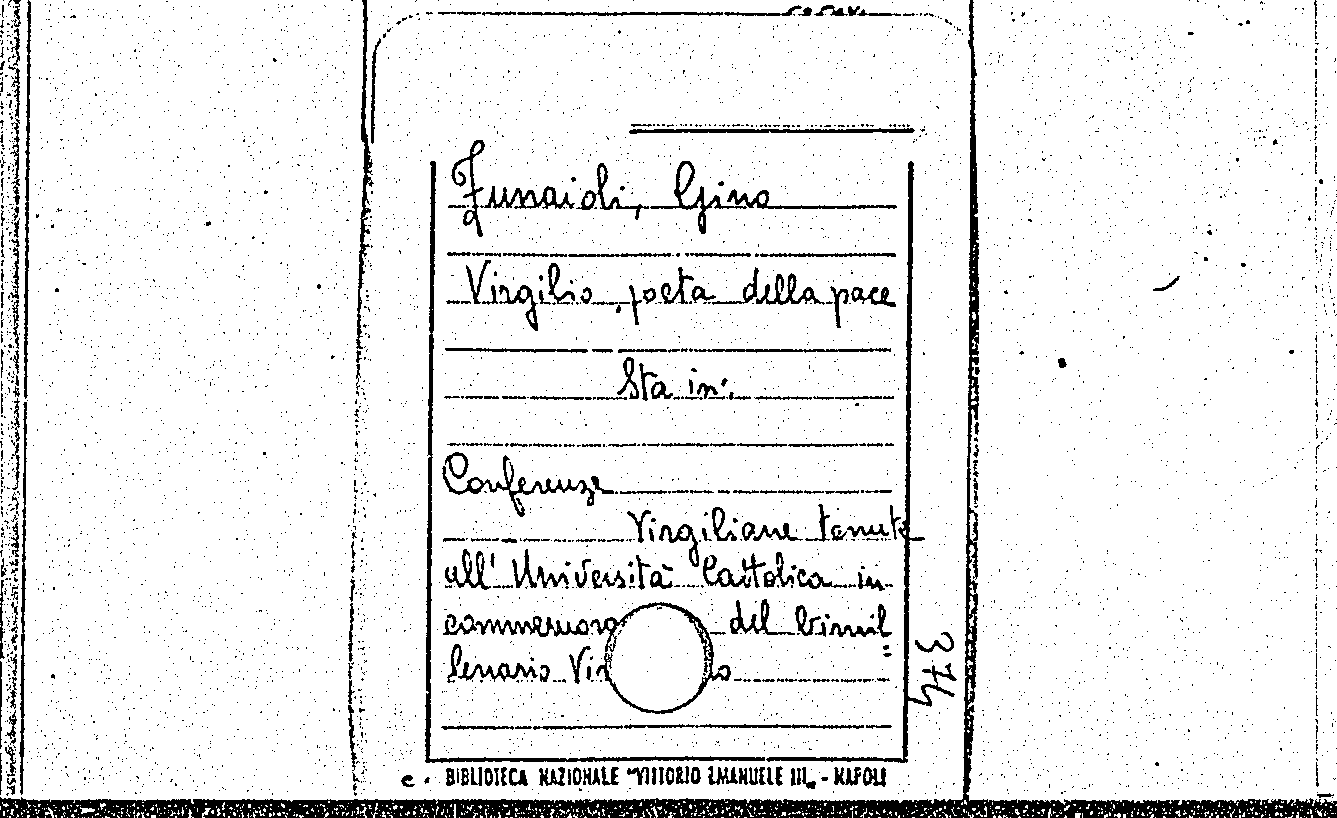 Funaioli, Gino
Virgilio, poeta della pace
Sta in:
Conferenze
Virgiliane tenute
all' Università Cattolica in
commemora del bimil=
lenario Vir o
374
BIBLIOTECA NAZIONALE "VITTORIO EMANUELE III„ - NAPOLI